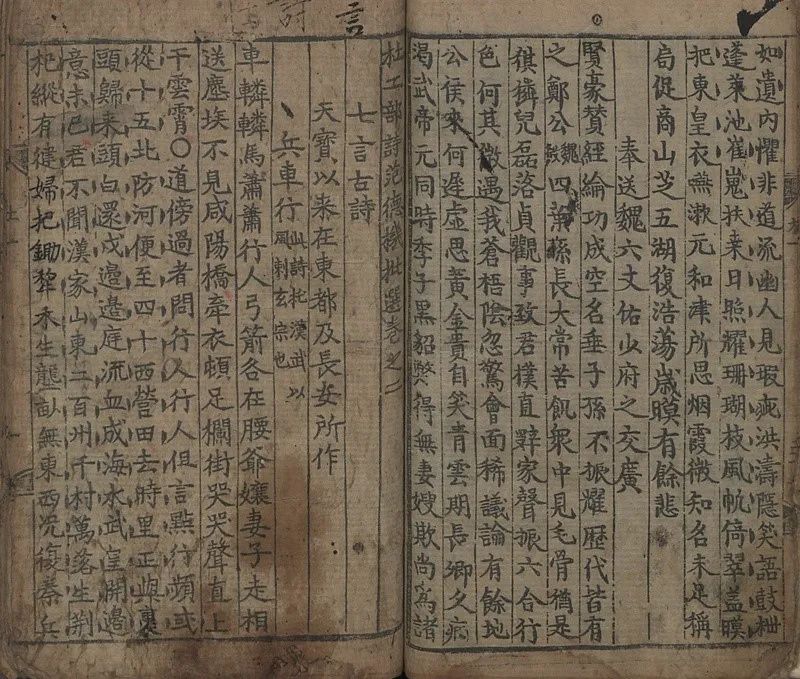 如遺內懼非道流幽人見瑕疵洪濤隱笑語鼓枻
蓬萊池崔嵬扶桒日照耀珊瑚枝風帆倚翠盖暯
把東皇衣嚥漱元和津所思烟霞微知名未足稱
局促商山芝五湖復浩蕩歲暯有餘悲
奉送魏六丈佑少府之交廣
賢豪賛經綸功成空名垂子孫不振耀歷代皆有
之鄭公魏徵四葉孫長大常苦飢衆中見毛骨猶是
猉獜兒磊落貞觀事致君樸直辭家聲振六合行
色何其微遇我蒼梧陰忽驚會面稀議論有餘地
公侯來何遲虛思黃金貴自笑青雲期長卿久病
渴武帝元同時季子黑貂弊得無妻嫂欺尚為諸
杜工部詩范德機批選卷之二
七言古詩
天寶以来在東都及長安所作
兵車行 此詩托漢武以風刺玄宗也
車轔轔馬蕭蕭行人弓箭各在腰爺孃妻子走相
送塵埃不見咸陽橋牽衣頓足欄街哭哭聲直上
干雲霄〇道傍過者問行人行人但言點行頻或
從十五北防河便至四十西營田去時里正與裹
頭歸来頭白還戍邉邉庭流血成海水武皇開邉
意未已君不聞漢家山東二百州千村萬落生荆
杞縱有健婦把鋤犂禾生壟畝無東西况復秦兵
言
詩